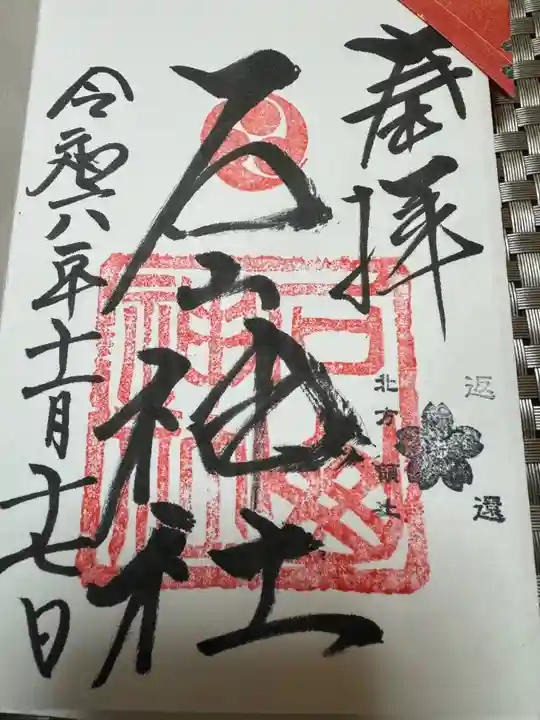 奉拝
神社
令和六年十一月十七日
返還
北方領土